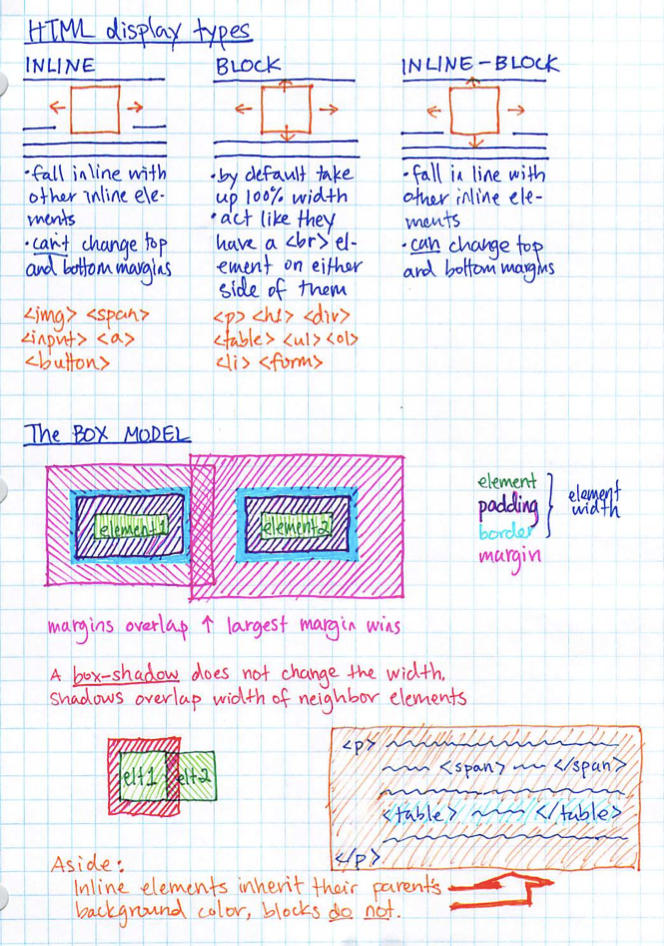 HTML display types
INLINE
• fall inline with
other inline ele-
ments
• can't change top
and bottom margins
<img> <span>
<input> <a>
<button>
BLOCK
• by default take
up 100% width
• act like they
have a <br> el-
ement on either
side of them
<p> <h1> <div>
<table> <ul> <ol>
<li> <form>
INLINE-BLOCK
• fall in line with
other inline ele-
ments
• can change top
and bottom margins
The BOX MODEL
element1
element2
element
padding
border
margin
element
width
margins overlap ↑ largest margin wins
A box-shadow does not change the width.
Shadows overlap width of neighbor elements
elt1
elt2
<p>
<span> </span>
<table> </table>
</p>
Aside:
Inline elements inherit their parents
background color, blocks do not.